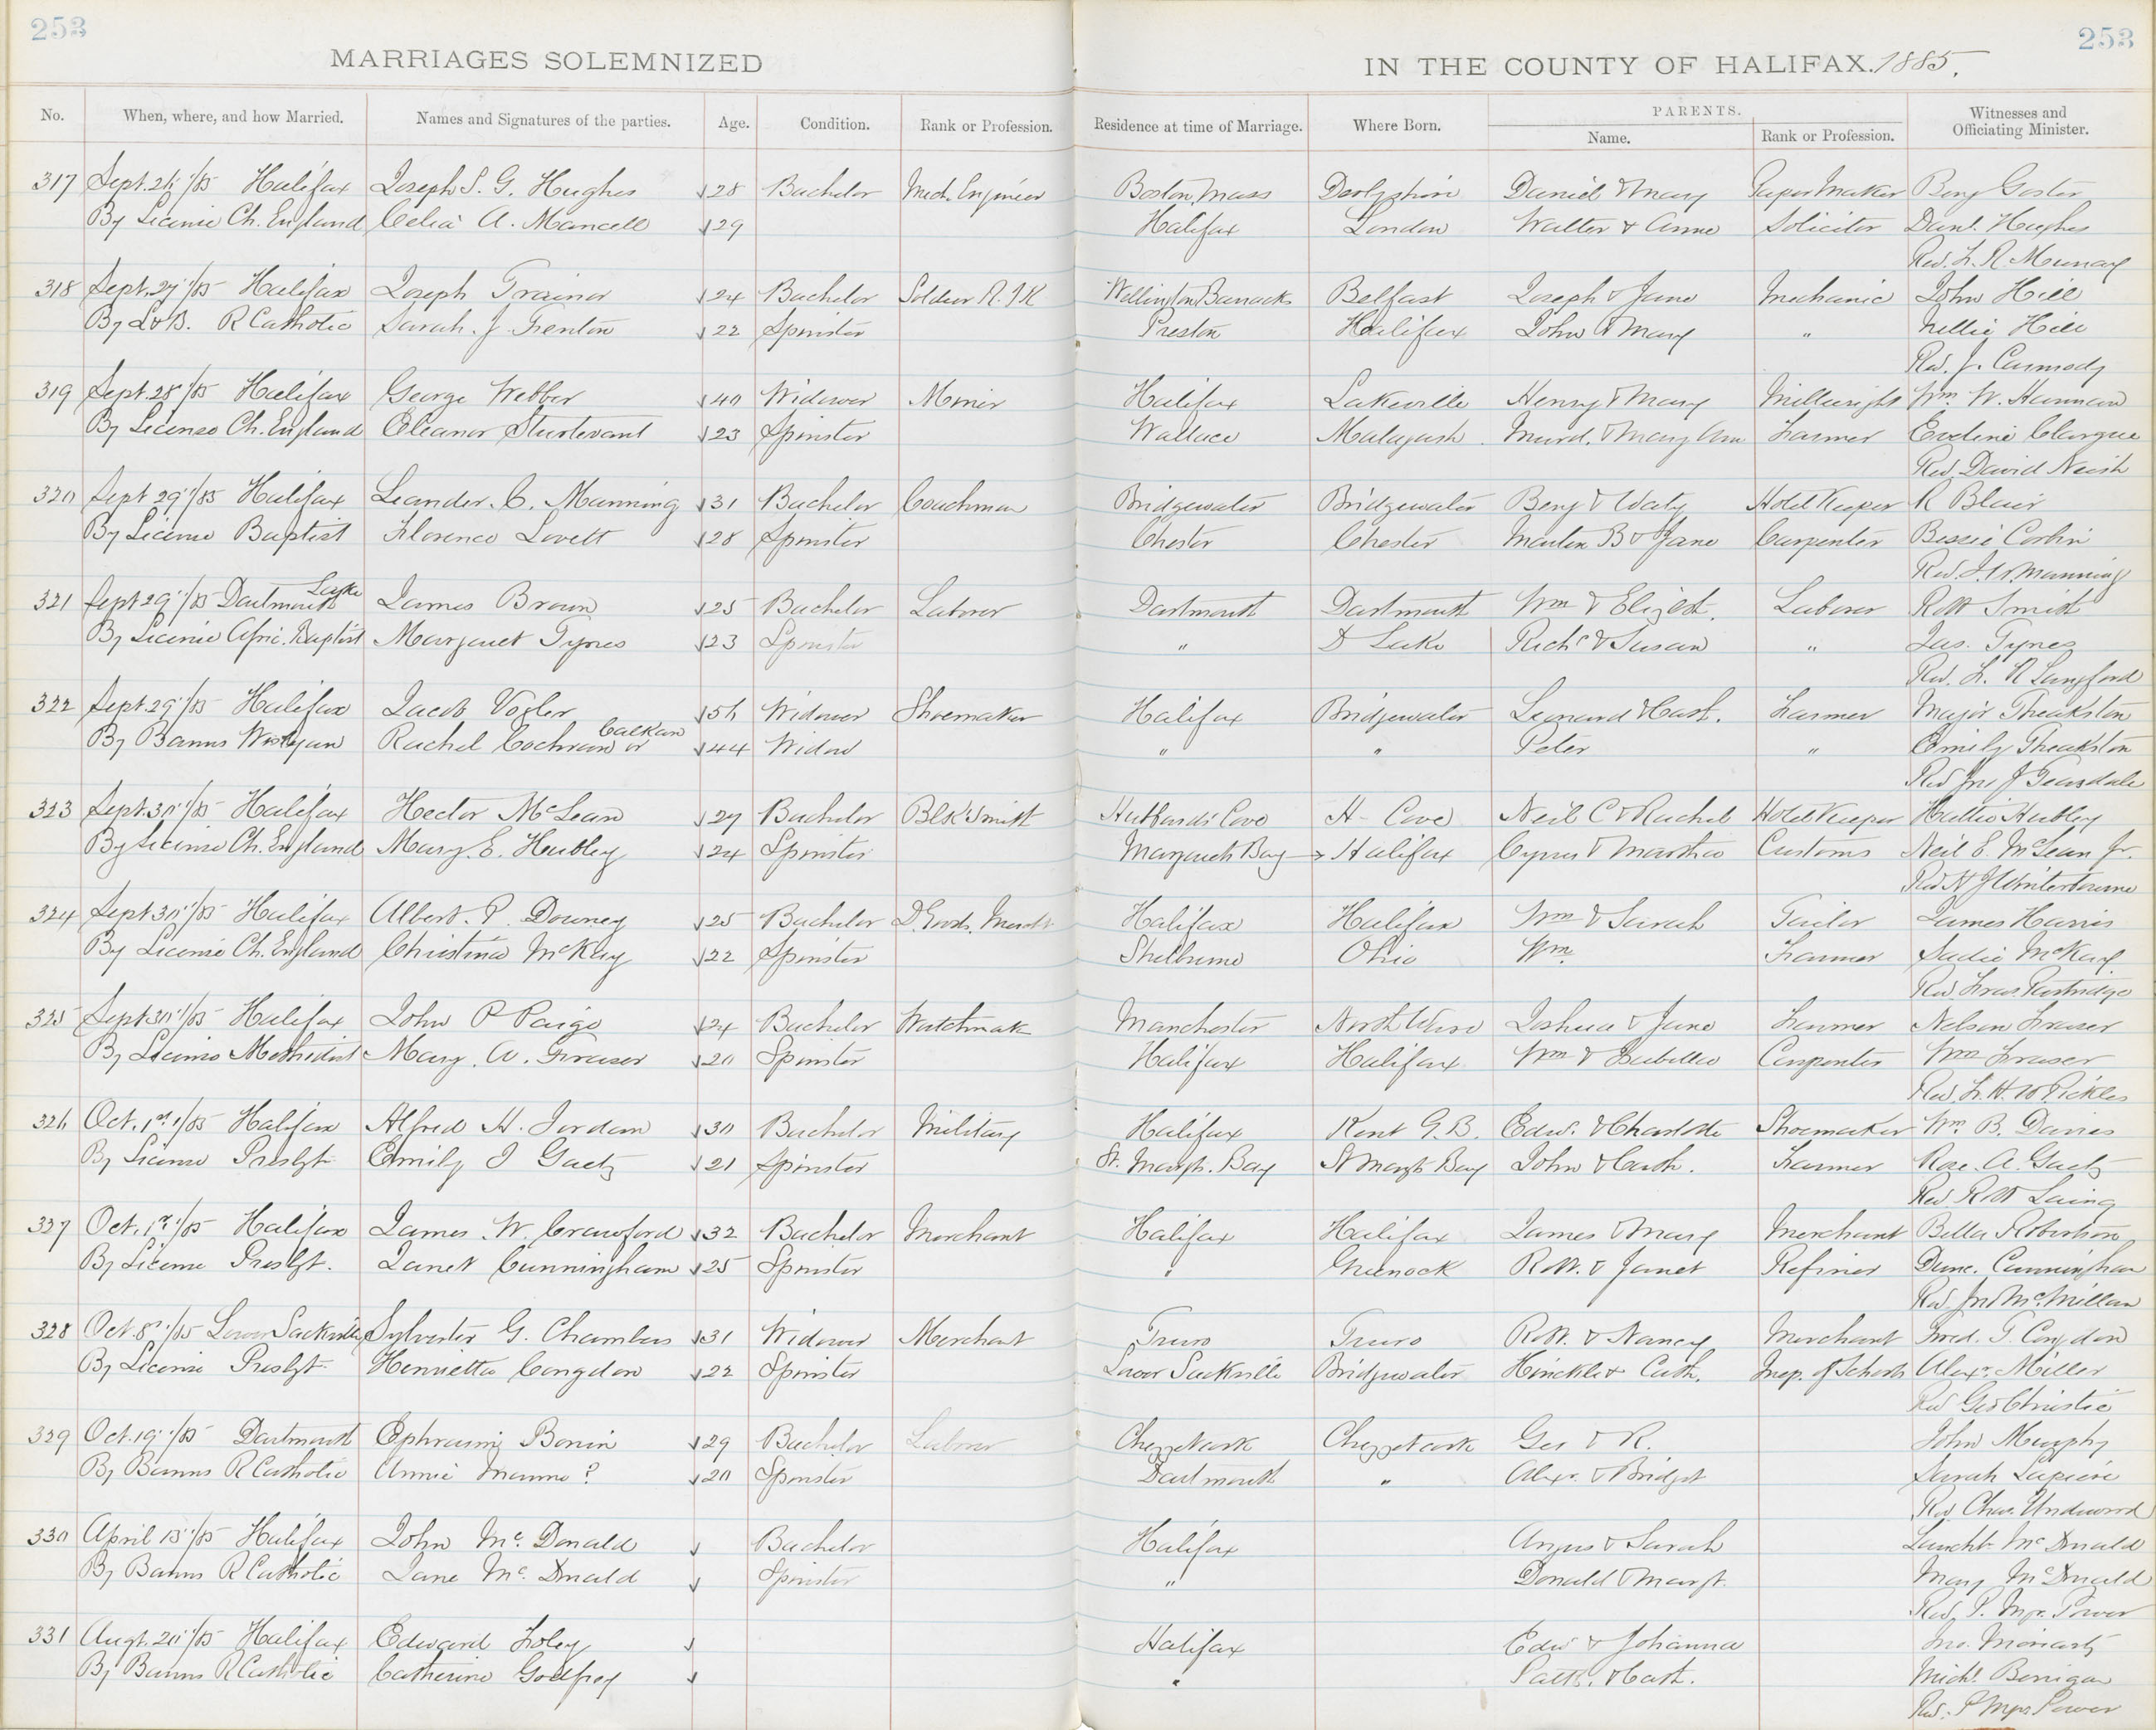 253 253
MARRIAGES SOLEMNIZED IN THE COUNTY OF HALIFAX. 1885.
No. When, where, and how Married. Names and Signatures of the parties. Age. Condition. Rank or Profession. Residence at time of Marriage. Where Born. PARENTS. Name. Rank or Profession. Witnesses and Officiating Minister.
317 Sept. 26 /85 Halifax Joseph S. G. Hughes 28 Bachelor Mech. Engineer Boston Mass Derbyshire Daniel & Mary Paper Maker Benj
By License Ch. England Celia A. Mancell 29 Halifax London Walter & Anne Solicitor Danl. Hughes
Rev. F. R. Murray
318 Sept. 27 /85 Halifax Joseph Trainor 24 Bachelor Soldier R. I R Wellington Barracks Belfast Joseph & Jane Mechanic John Hill
By L & B. R Catholic Sarah. J. Trenton 22 Spinster Preston Halifax John & Mary " Nellie Hill
Rev. J. Carmody
319 Sept. 28 /85 Halifax George Webber 40 Widower Miner Halifax Lakeville Henry & Mary Millwright Wm. W. Harman
By License Ch. England Eleanor Sturtevant 23 Spinster Wallace Malagash Murd. & Mary Ann Farmer Eveline
Rev David Neish
320 Sept 29 /85 Halifax Leander. C. Manning 31 Bachelor Coachman Bridgewater Bridgewater Benj & Hotel Keeper R Blair
By License Baptist Florence Lovett 28 Spinster Chester Chester Martin B & Jane Carpenter Bessie Corbin
Rev. J. W. Manning
321 Sept 29 /85 Dartmouth Lake James Brown 25 Bachelor Laborer Dartmouth Dartmouth Wm & Elizbt. Laborer Robt Smith
By License Afric. Baptist Margaret Tynes 23 Spinster " D Lake Richd & Susan " Jas. Tynes
Rev. F. R Langford
322 Sept. 29 /85 Halifax Jacob Vogler 56 Widower Shoemaker Halifax Bridgewater Leonard & Cath. Farmer Major Theakston
By Banns Wesleyan Rachel Cochran or Calkan 44 Widow " " Peter " Emily Theakston
Rev Jno J Teasdale
323 Sept. 30 /85 Halifax Hector McLean 27 Bachelor Blk Smith Hubbards Cove H- Cove Neil C & Rachel Hotel Keeper Hattie Hubley
By License Ch. England Mary. E. Hubley 24 Spinster Margarets Bay → Halifax Cyrus & Martha Customs Neil E. McLean Jr.
Rev N J Winterbourne
324 Sept 30 /85 Halifax Albert. P. Downey 25 Bachelor D. Goods. Mercht Halifax Halifax Wm & Sarah Tailor James Harris
By License Ch. England Christina McKay 22 Spinster Shelburne Ohio Wm. Farmer Sadie McKay
Rev. Fras. Partridge
325 Sept 30 /85 Halifax John P Paige 24 Bachelor Watchmak Manchester Joshua & Jane Farmer Nelson Fraser
By License Methodist Mary. A. Fraser 20 Spinster Halifax Halifax Wm & Isabella Carpenter Wm Fraser
Rev. F. H. W Pickles
326 Oct. 1st /85 Halifax Alfred H. Jordan 30 Bachelor Military Halifax Kent G. B. Edw. & Charlotte Shoemaker Wm. B. Davies
By License Presbyt. Emily J Gaetz 21 Spinster St. Margt. Bay St Margts Bay John & Cath. Farmer Rose. A. Gaetz
Rev Robt Laing
327 Oct. 1st /85 Halifax James. W. Crawford 32 Bachelor Merchant Halifax Halifax James & Mary Merchant Bella Robertson
By License Presbyt. Janet Cunningham 25 Spinster " Greenock Robt. & Janet Refiner Dunc. Cunningham
Rev. Jno McMillan
328 Oct. 8 /85 Lower Sackville Sylvester G. Chambers 31 Widower Merchant Truro Truro Robt. & Nancy Merchant Fred. T. Congdon
By License Presbyt. Henrietta Congdon 22 Spinster Lower Sackville Bridgewater Hinckle & Cath. Insp. of Schools Alexr. Miller
Rev Geo Christie
329 Oct. 19 /85 Dartmouth Ephraim Bonin 29 Bachelor Laborer Chezzetcook Chezzetcook Geo & R. John Murphy
By Banns R Catholic Annie Manno ? 20 Spinster Dartmouth " Alexr. & Bridget Sarah Lapierre
Rev Chas. Underwood
330 April 13 /85 Halifax John Mc. Donald Bachelor Halifax Angus & Sarah Laucht. McDonald
By Banns R Catholic Jane Mc. Donald Spinster " Donald & Margt. Mary McDonald
Rev. P. Mgr. Power
331 Augt. 20 /85 Halifax Edward Foley Halifax Edw & Johanna Jno. Moriarty
By Banns R Catholic Catherine Godfrey " Patk. & Cath. Michl. Berrigan
Rev. P Mgr. Power